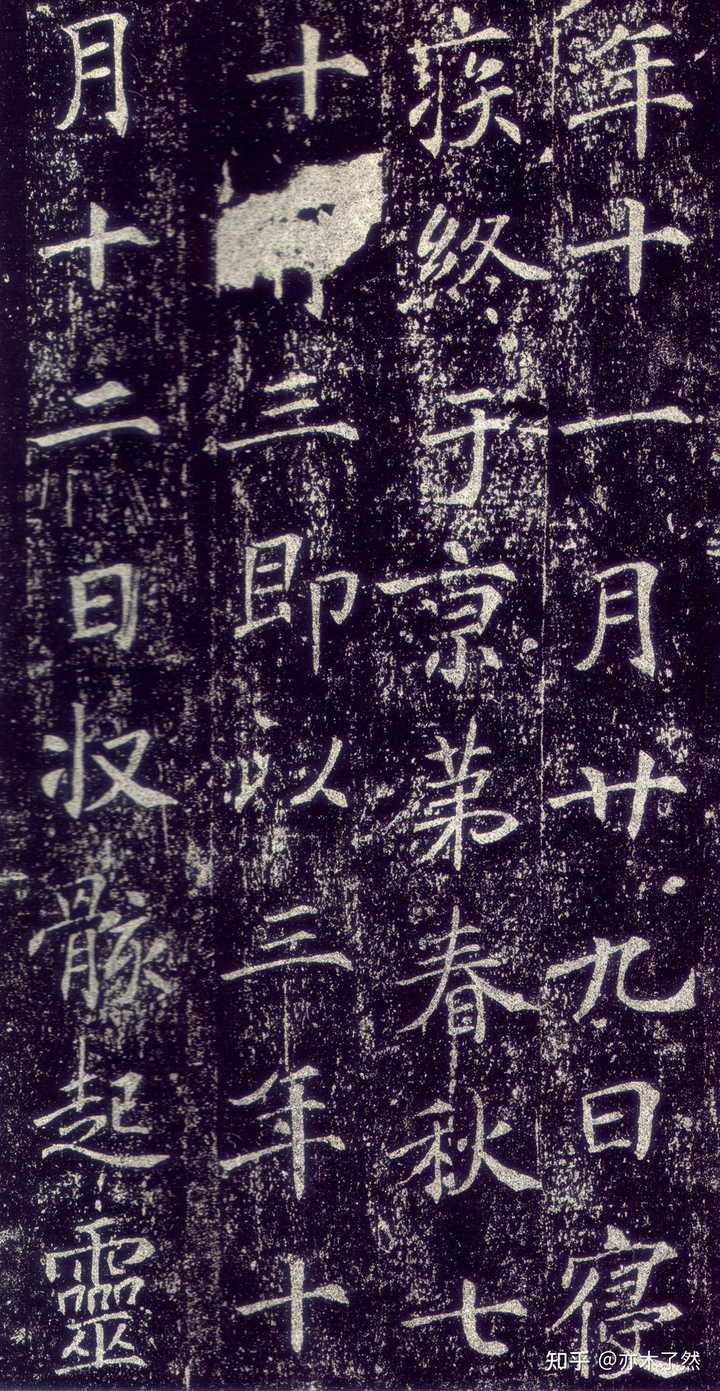 年十一月廿九日寑
疾終于京苐春秋七
十三即以三年十
月十二日収骸起靈
知乎 @亦木了然